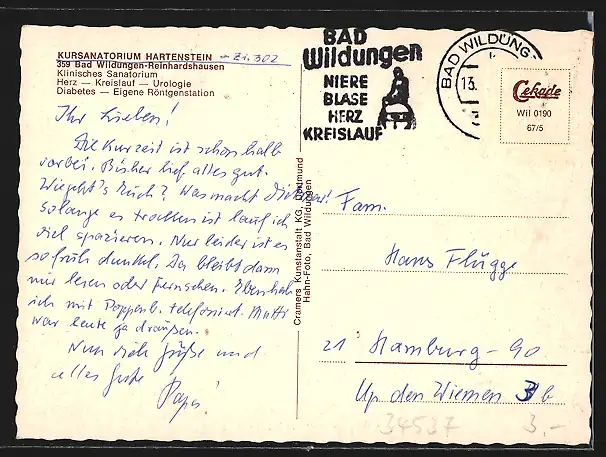 KURSANATORIUM HARTENSTEIN - Zi. 302
359 Bad Wildungen-Reinhardshausen
Klinisches Sanatorium
Herz — Kreislauf — Urologie
Diabetes — Eigene Röntgenstation
Ihr Lieben!
Die Kurzeit ist schon halb
vorbei. Bisher lief alles gut.
Wie geht's Euch? Was macht
Solange es trocken ist lauf ich
viel spazieren. Nur leider ist es
so früh dunkel. Da bleibt dann
nur lesen oder Fernsehen. Eben hab
ich mit Poppenb. telefoniert. Mutti
war heute ja draußen.
Nun Grüße und
alles Gute
Papa!
Cramers Kunstanstalt KG, Dortmund
Hahn-Foto, Bad Wildungen
BAD
Wildungen
NIERE
BLASE
HERZ
KREISLAUF
BAD WILDUNG
13.
Cekade
Wil 0190
67/5
Fam.
Hans Flügge
21 Hamburg-90
Up den Wiemen 3 b
34537
3,-